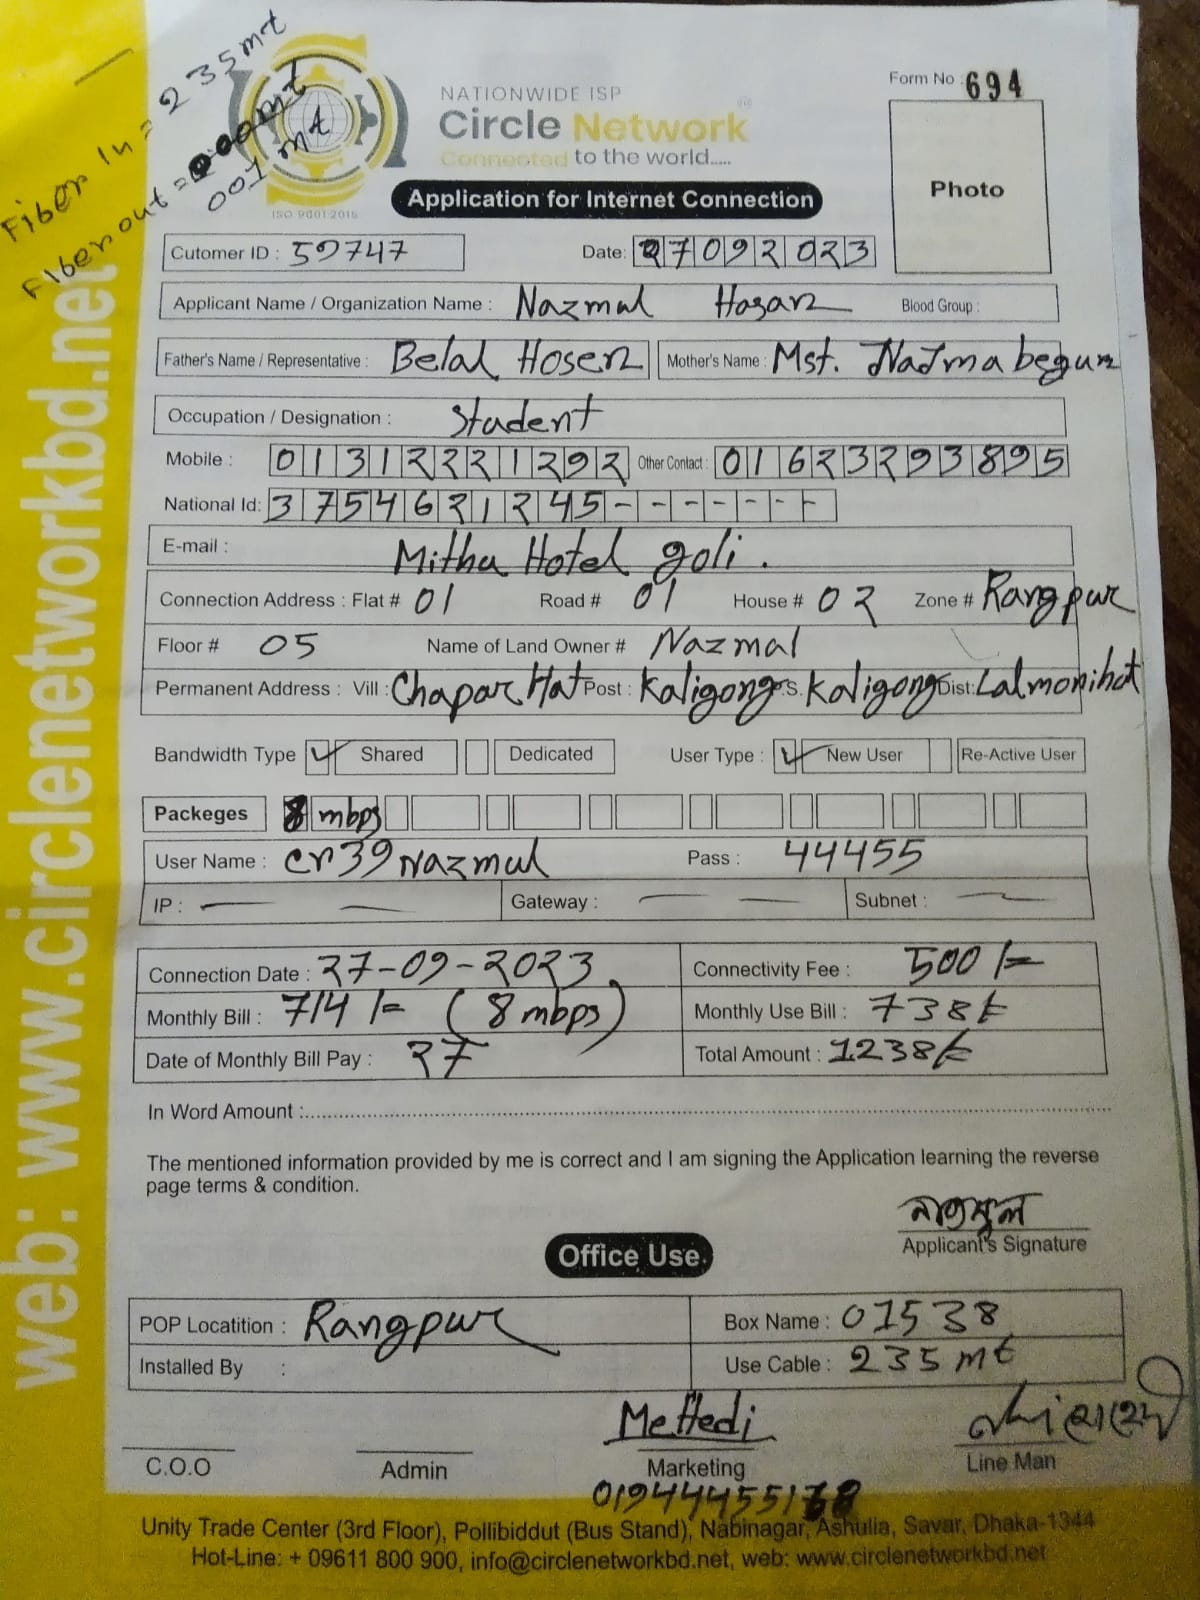 Fiber In = 235 mt
Fiber out = 000mt
001 mt
NATIONWIDE ISP
Circle Network
Connected to the world.....
ISO 9001:2015
Form No : 694
Photo
Application for Internet Connection
Cutomer ID : 59747 Date: 27092023
Applicant Name / Organization Name : Nazmul Hasan Blood Group :
Father's Name / Representative : Belal Hosen Mother's Name : Mst. Nazma begum
Occupation / Designation : Student
Mobile : 01312221292 Other Contact : 01623293895
National Id: 3754621245-------
E-mail : Mithu Hotel goli.
Connection Address : Flat # 01 Road # 01 House # 02 Zone # Rangpur
Floor # 05 Name of Land Owner # Nazmul
Permanent Address : Vill : Chapar Hat Post : Kaligong P.S. Kaligong Dist: Lalmonihat
Bandwidth Type ✓ Shared Dedicated User Type : ✓ New User Re-Active User
Packeges 8 mbps
User Name : cn39nazmul Pass : 44455
IP : — — Gateway : — — Subnet : —
Connection Date : 27-09-2023 Connectivity Fee : 500/=
Monthly Bill : 714/= (8 mbps) Monthly Use Bill : 738
Date of Monthly Bill Pay : 27 Total Amount : 1238
In Word Amount :
The mentioned information provided by me is correct and I am signing the Application learning the reverse
page terms & condition.
নাজমুল
Applicant's Signature
Office Use
POP Locatition : Rangpur Box Name : 01538
Installed By : Use Cable : 235 mt
Mehedi
C.O.O Admin Marketing Line Man
Unity Trade Center (3rd Floor), Pollibiddut (Bus Stand), Nabinagar, Ashulia, Savar, Dhaka-1344
Hot-Line: + 09611 800 900, info@circlenetworkbd.net, web: www.circlenetworkbd.net
web: www.circlenetworkbd.net